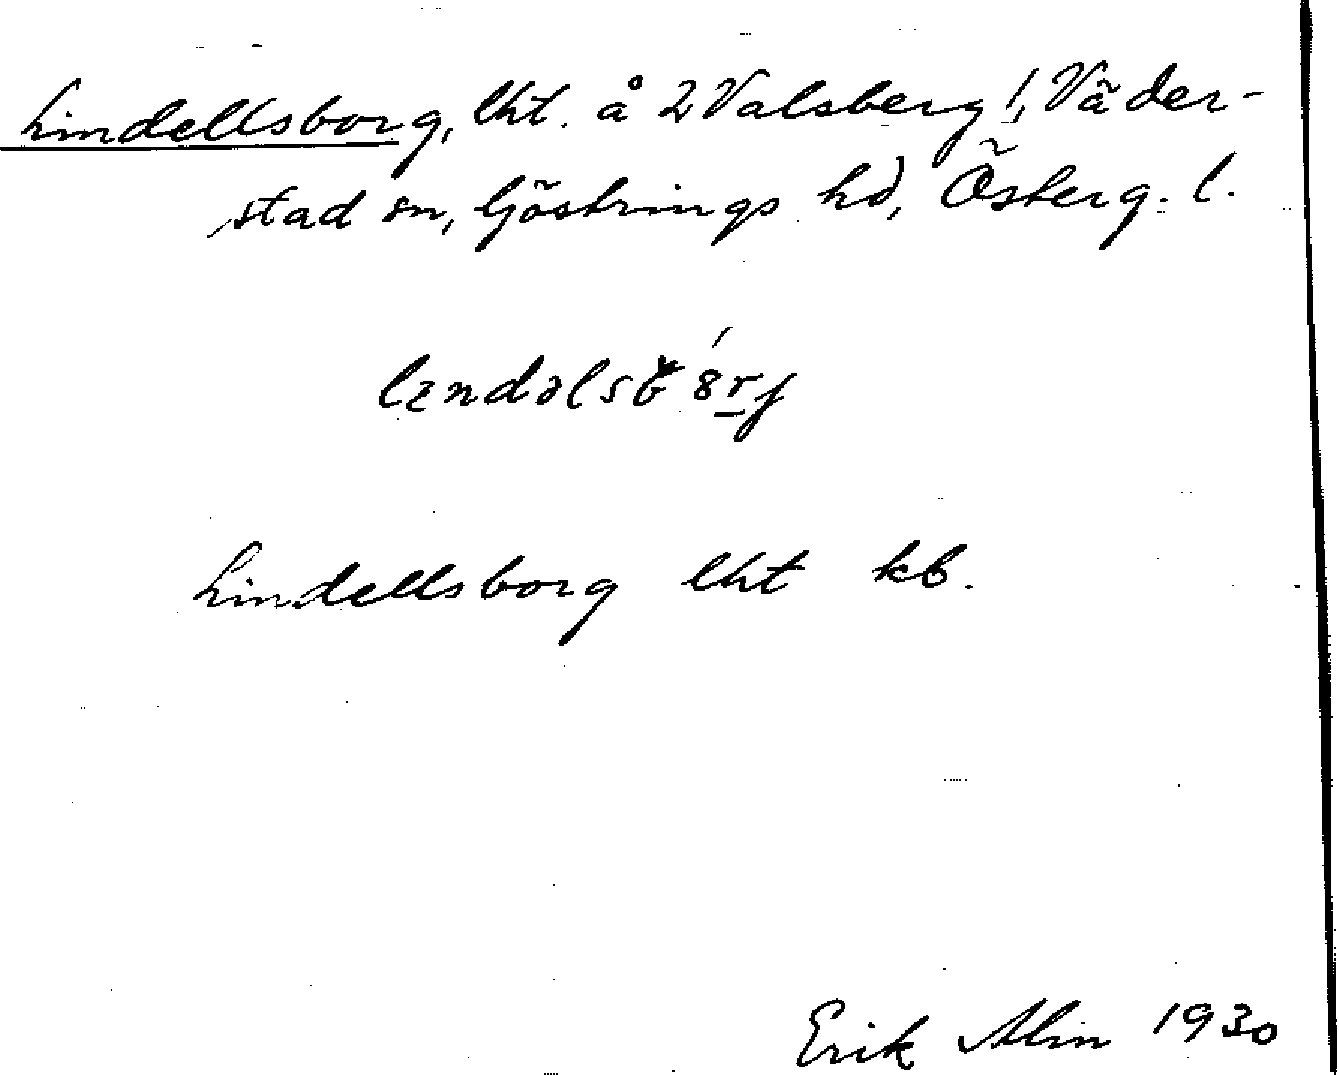 Lindellsborg, lht. å 2 Valsberg 1, Väder-
stad sn, Göstrings hd, Österg. l.
Lindellsborg lht kb.
Erik Alin 1930